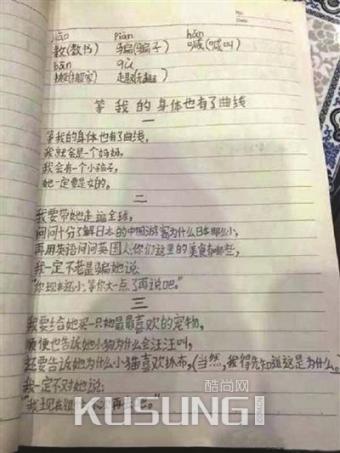 No:
Date
jiāo piàn hǎn
教(教书) 骗(骗子) 喊(喊叫)
bān qù
搬(搬家) 趣(有趣)
等我的身体也有了曲线
一
等我的身体也有了曲线,
我就会是一个好妈妈,
我会有一个小孩子,
她一定要是女的。
二
我要带她走遍全球,
问问十分了解日本的中国游客为什么日本那么小,
再用英语问问英国人你们这里的美食有哪些,
我一定不老是骗她说:
"你现在还小,等你大一点了再说吧。"
三
我要给她买一只她最最喜欢的宠物,
顺便也告诉她小狗为什么会汪汪叫,
还要告诉她为什么小猫喜欢抓布,(当然,我得先知道这是为什么。)
我一定不对她说:
"我现在很 再 吧。"
酷尚网
KUSUNG